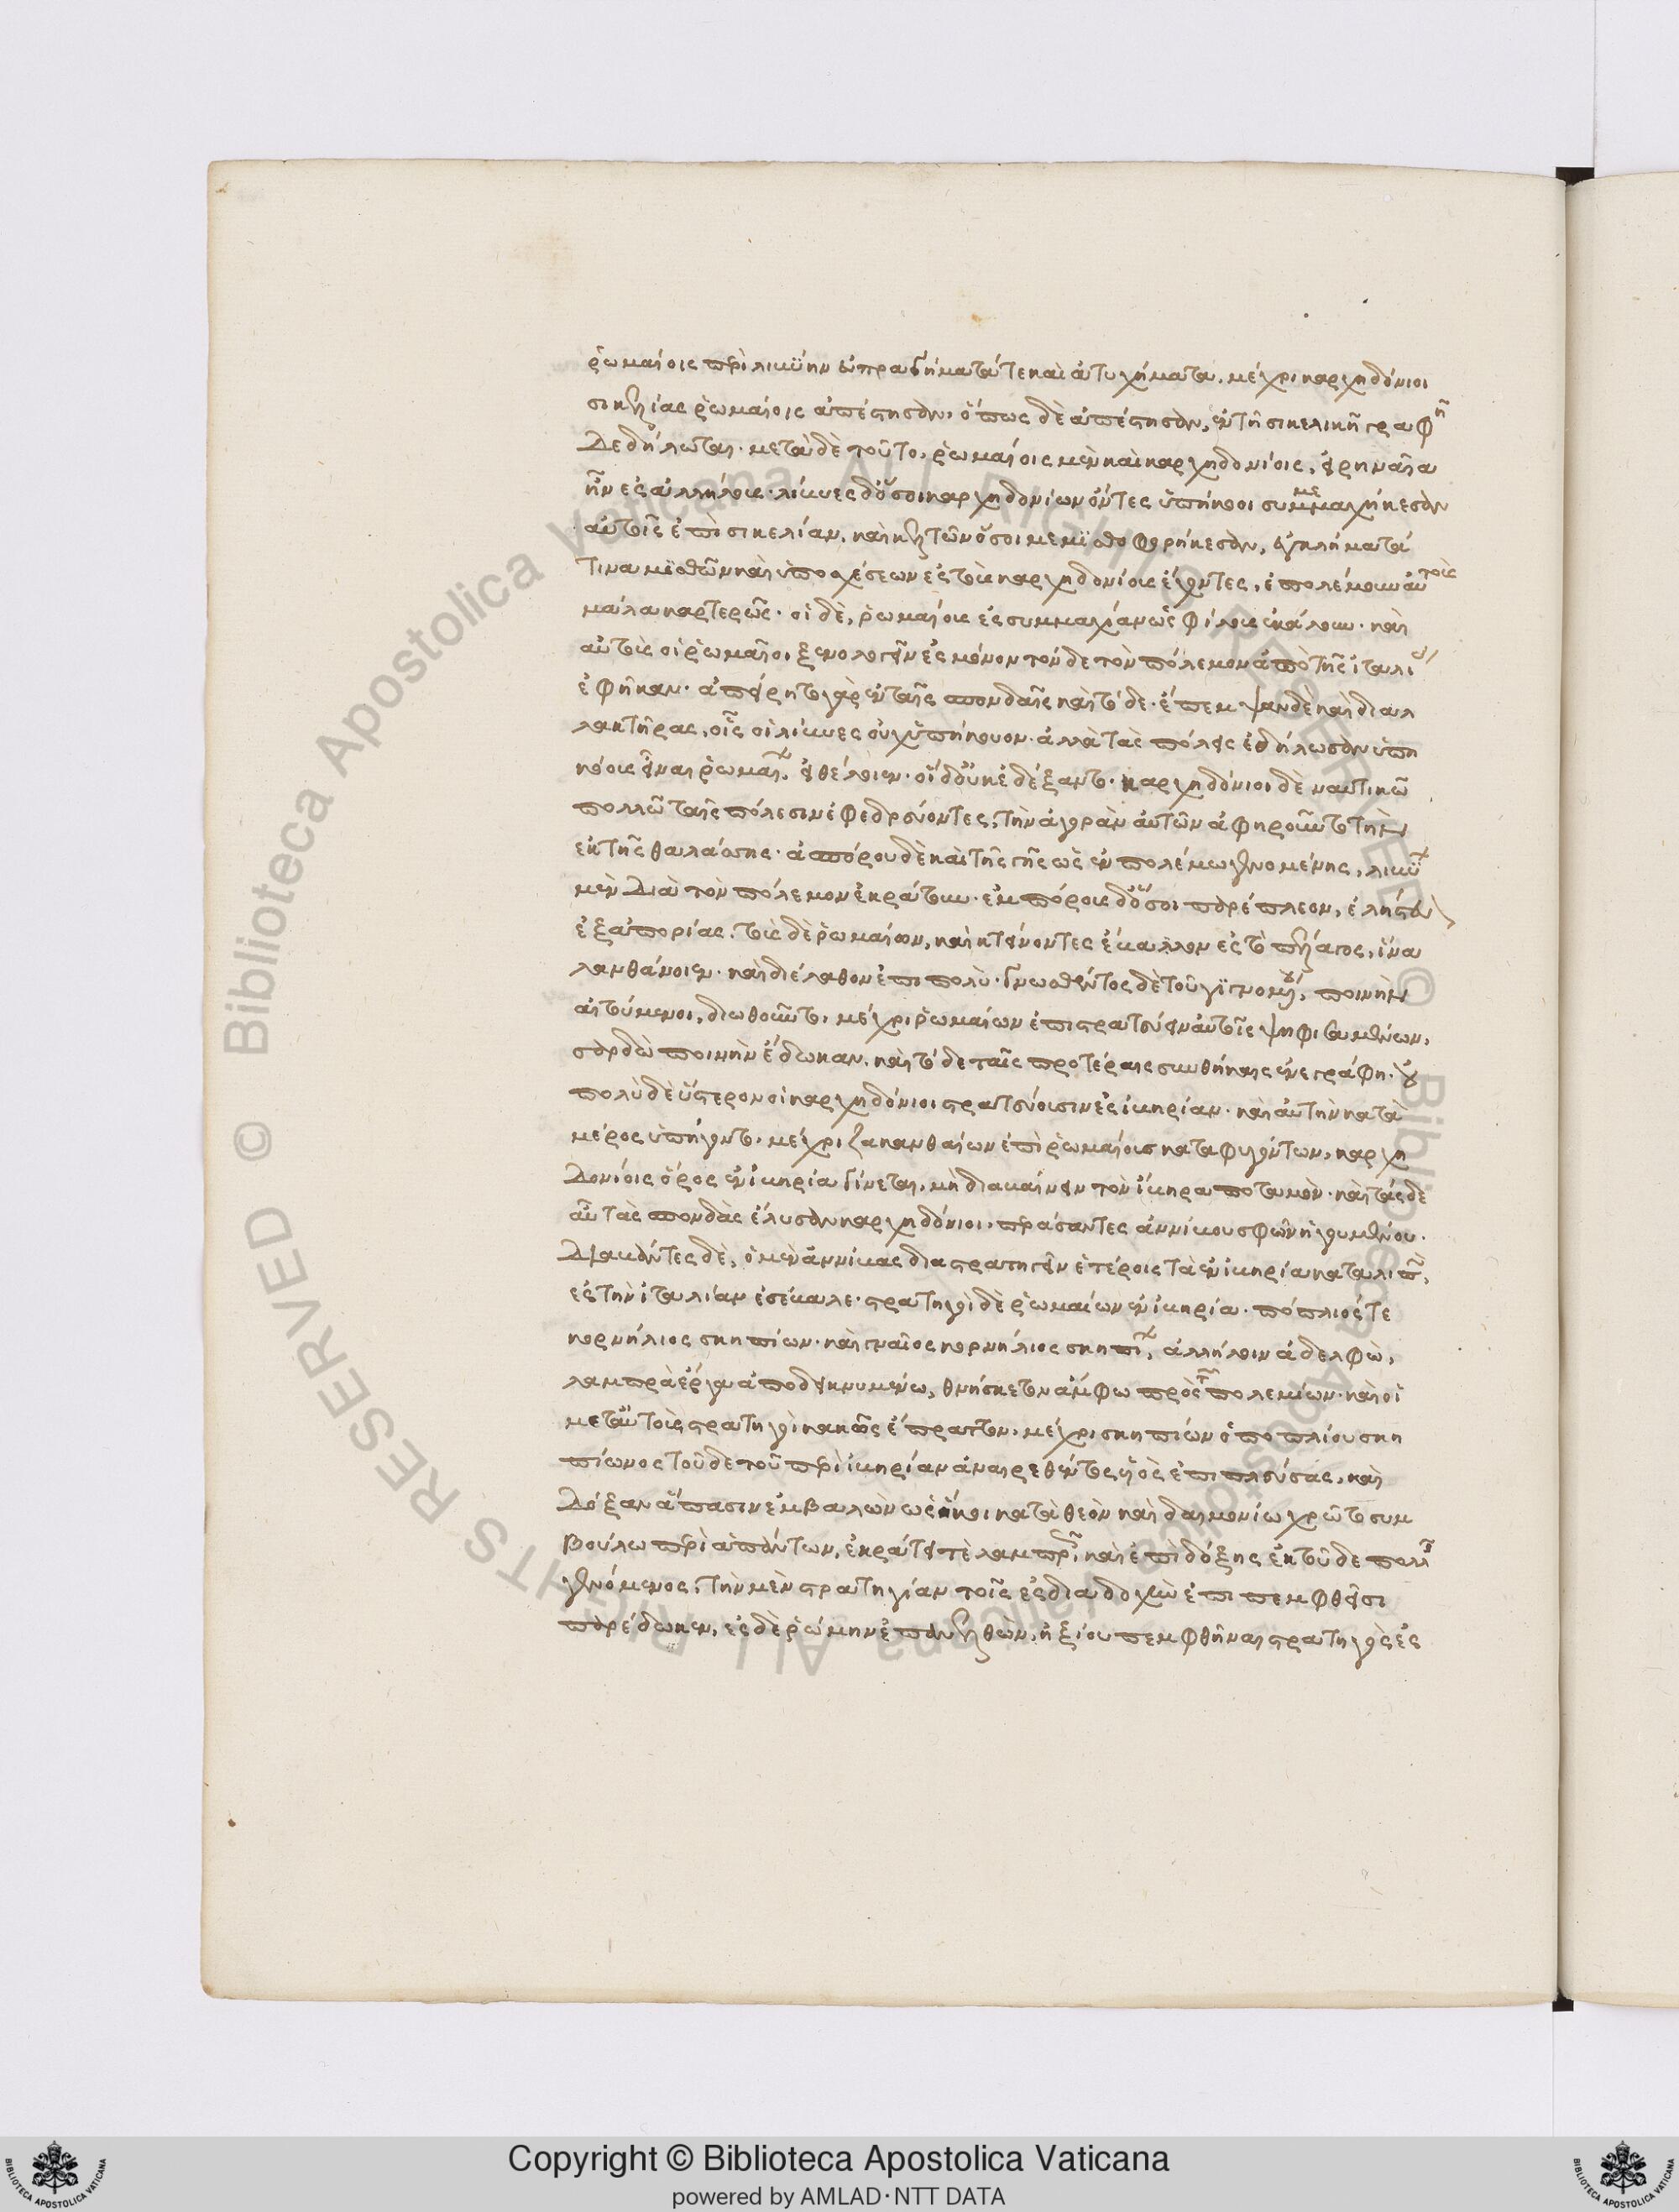 ῥωμαίοις περὶ λιβύην εὐπραγήματά τε καὶ ἀτυχήματα. μέχρι καρχηδόνιοι
σικελίας ῥωμαίοις ἀπέστησαν. ὅπως δὲ ἀπέστησαν, ἐν τῆ σικελικῆ γραφῆ
δεδήλωται. μετὰ δὲ τοῦτο, ῥωμαίοις μὲν καὶ καρχηδονίοις, εἰρηναῖα
ἦν ἐς ἀλλήλους. λίβυες δ' ὅσοι καρχηδονίων ὄντες ὑπήκοοι συμμεμαχήκεσαν
αὐτοῖς ἐπὶ σικελίαν. καὶ κελτῶν ὅσοι μεμισθοφορήκεσαν, ἐγκλήματά
τινα μισθῶν καὶ ὑποσχέσεων ἐς τοὺς καρχηδονίους ἔχοντες, ἐπολέμουν αὐτοῖς
μάλα καρτερῶς. οἱ δὲ, ῥωμαίους ἐς συμμαχίαν ὡς φίλους ἐκάλουν. καὶ
αὐτοῖς οἱ ῥωμαῖοι ξενολογεῖν ἐς μόνον τόνδε τὸν πόλεμον ἀπὸ τῆς ἰταλίας
ἐφῆκαν. ἀπείρητο γὰρ ἐν ταῖς σπονδαῖς καὶ τόδε. ἔπεμψαν δὲ καὶ διαλ
λακτῆρας, οἷς οἱ λίβυες οὐχ ὑπήκουον. ἀλλὰ τὰς πόλεις ἐδήλωσαν ὑπη
κόους εἶναι ῥωμαίων, εἰ θέλοιεν. οἱ δ' οὐκ ἐδέξαντο. καρχηδόνιοι δὲ ναυτικῶ
πολλῶ ταῖς πόλεσιν ἐφεδρεύοντες, τὴν ἀγορὰν αὐτῶν ἀφηροῦντο τὴν
ἐκ τῆς θαλάσσης. ἀσπόρου δὲ καὶ τῆς γῆς ὡς ἐν πολέμω γενομένης, λιβύων
μὲν διὰ τὸν πόλεμον ἐκράτουν. ἐμπόρους δ' ὅσοι παρέπλεον, ἐλήστευον
ἐξ ἀπορίας. τοὺς δὲ ῥωμαίων, καὶ κτείνοντες ἔβαλλον ἐς τὸ πέλαγος, ἵνα
λανθάνοιεν. καὶ διέλαθον ἐπιπολὺ. γνωσθέντος δὲ τοῦ γιγνομένου, ποινὴν
αἰτούμενοι, διωθοῦντο. μέχρι ῥωμαίων ἐπιστρατεύειν αὐτοῖς ψηφισαμένων,
σαρδὼ ποινὴν ἔδωκαν. καὶ τόδε ταῖς προτέραις συνθήκαις ἐνεγράφη. οὐ
πολὺ δὲ ὕστερον οἱ καρχηδόνιοι στρατεύουσιν ἐς ἰβηρίαν. καὶ αὐτὴν κατὰ
μέρος ὑπήγοντο. μέχρι ζακανθαίων ἐπὶ ῥωμαίους καταφυγόντων, καρχη
δονίοις ὅρος ἐν ἰβηρία γίνεται. μὴ διαβαίνειν τὸν ἴβηρα ποταμὸν. καὶ τάσδε
αὖ τὰς σπονδὰς ἔλυσαν καρχηδόνιοι. περάσαντες ἀννίβου σφῶν ἡγουμένου.
διαβάντες δὲ, ὁ μὲν ἀννίβας διαστρατηγεῖν ἑτέροις τὰ ἐν ἰβηρία καταλιπὼν,
ἐς τὴν ἰταλίαν ἐσέβαλε. στρατηγοὶ δὲ ῥωμαίων ἐν ἰβηρία. πόπλιός τε
κορνήλιος σκηπίων. καὶ γναῖος κορνήλιος σκηπίων, ἀλλήλοιν ἀδελφὼ,
λαμπρὰ ἔργα ἀποδεικνυμένω, θνήσκετον ἄμφω πρὸς τῶν πολεμίων. καὶ οἱ
μετ' αὐτοὺς στρατηγοὶ κακῶς ἔπραττον. μέχρι σκηπίων ὁ ποπλίου σκη
πίωνος τοῦδε τοῦ περὶ ἰβηρίαν ἀναιρεθέντος υἱὸς ἐπιπλεύσας. καὶ
δόξαν ἅπασιν ἐμβαλὼν ὡς ἥκοι κατὰ θεὸν καὶ δαιμονίω χρῶτο συμ
βούλω περὶ ἁπάντων, ἐκράτει τὲ λαμπρῶς. καὶ ἐπὶ δόξης ἐκ τοῦδε πολλῆς
γενόμενος, τὴν μὲν στρατηγίαν τοῖς ἐς διαδοχὴν ἐπιπεμφθεῖσι
παρέδωκεν, ἐς δὲ ῥώμην ἐπανελθὼν, ἠξίου πεμφθῆναι στρατηγὸς ἐς
Copyright © Biblioteca Apostolica Vaticana
powered by AMLAD·NTT DATA